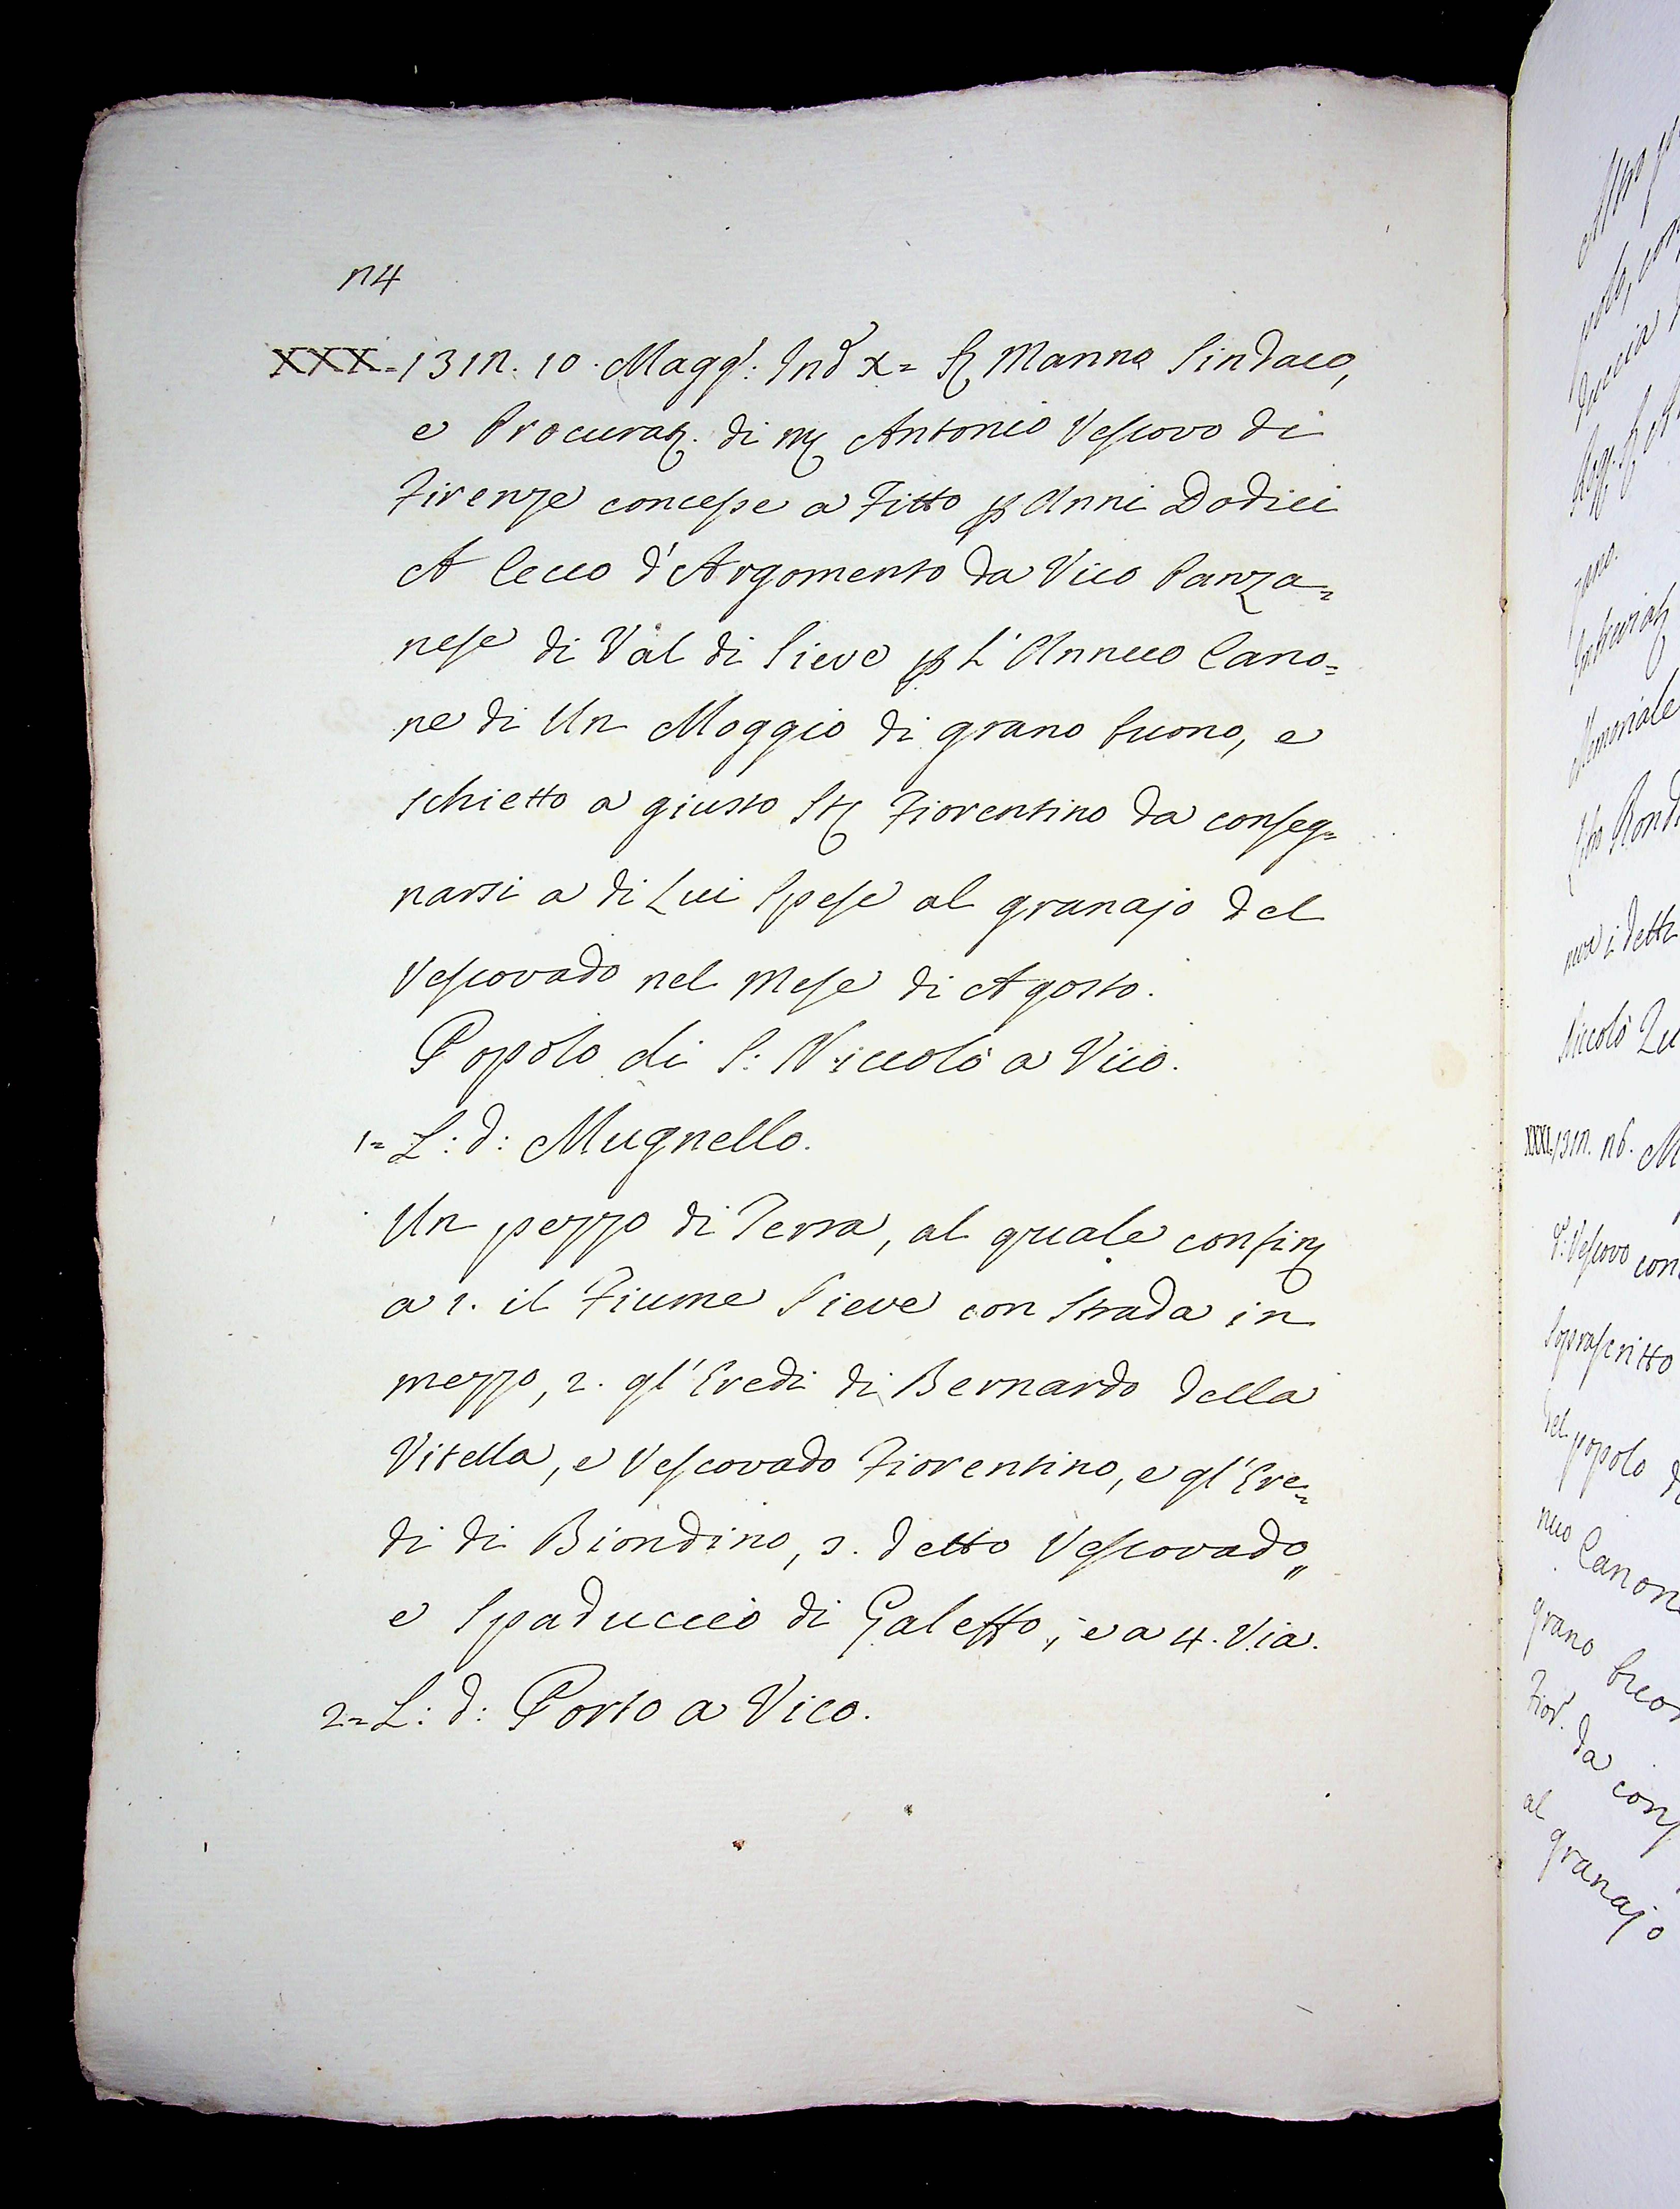 n4
XXX = 131n. 10. Magg: Ind X = S Manno Sindaco,
e Procurat. di M Antonio Vescovo di
Firenze concesse a Fitto p Anni Dodici
A Cecco d'Argomento da Vico Panza=
nese di Val di Sieve p L'Annuo Cano=
ne di Un Moggio di grano buono, e
schietto a giusto St Fiorentino da conseg=
narsi a di Lui Spese al granajo del
Vescovado nel Mese di Agosto.
Popolo di S: Niccolò a Vico.
1= L: d: Mugnello.
Un pezzo di Terra, al quale confin
a 1. il Fiume Sieve con Strada in
mezzo, 2. gl'Eredi di Bernardo della
Vitella, e Vescovado Fiorentino, e gl'Ere=
di di Biondino, 3. detto Vescovado,,
e Spaduccio di Galetto, e a 4. Via.
2= L: d: Porto a Vico.
pno.
Memoriale
Niccolò
XXXI. 131n. n6. M
d: Vescovo con
Soprascritto
del popolo
nuo Canon
grano buo
Fior. da con
al granajo